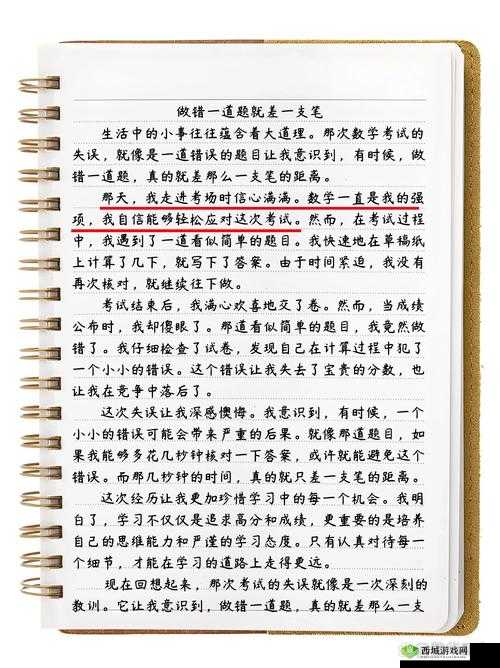 做错一道题就差一支笔
生活中的小事往往蕴含着大道理。那次数学考试的
失误，就像是一道错误的题目让我意识到，有时候，做
错一道题，真的就差那么一支笔的距离。
那天，我走进考场时信心满满。数学一直是我的强
项，我自信能够轻松应对这次考试。然而，在考试过程
中，我遇到了一道看似简单的题目。我快速地在草稿纸
上计算了几下，就写下了答案。由于时间紧迫，我没有
再次核对，就继续往下做。
考试结束后，我满心欢喜地交了卷。然而，当成绩
公布时，我却傻眼了。那道看似简单的题目，我竟然做
错了。我仔细检查了试卷，发现自己在计算过程中犯了
一个小小的错误。这个错误让我失去了宝贵的分数，也
让我在竞争中落后了。
这次失误让我深感懊悔。我意识到，有时候，一个
小小的错误可能会带来严重的后果。就像那道题目，如
果我能够多花几秒钟核对一下答案，或许就能避免这个
错误。而那几秒钟的时间，真的就只差一支笔的距离。
这次经历让我更加珍惜学习中的每一个机会。我明
白了，学习不仅仅是追求高分和成绩，更重要的是培养
自己的思维能力和严谨的学习态度。只有认真对待每一
个细节，才能在学习的道路上走得更远。
现在回想起来，那次考试的失误就像是一次深刻的
教训。它让我意识到，做错一道题，真的就差那么一支
西城游戏网